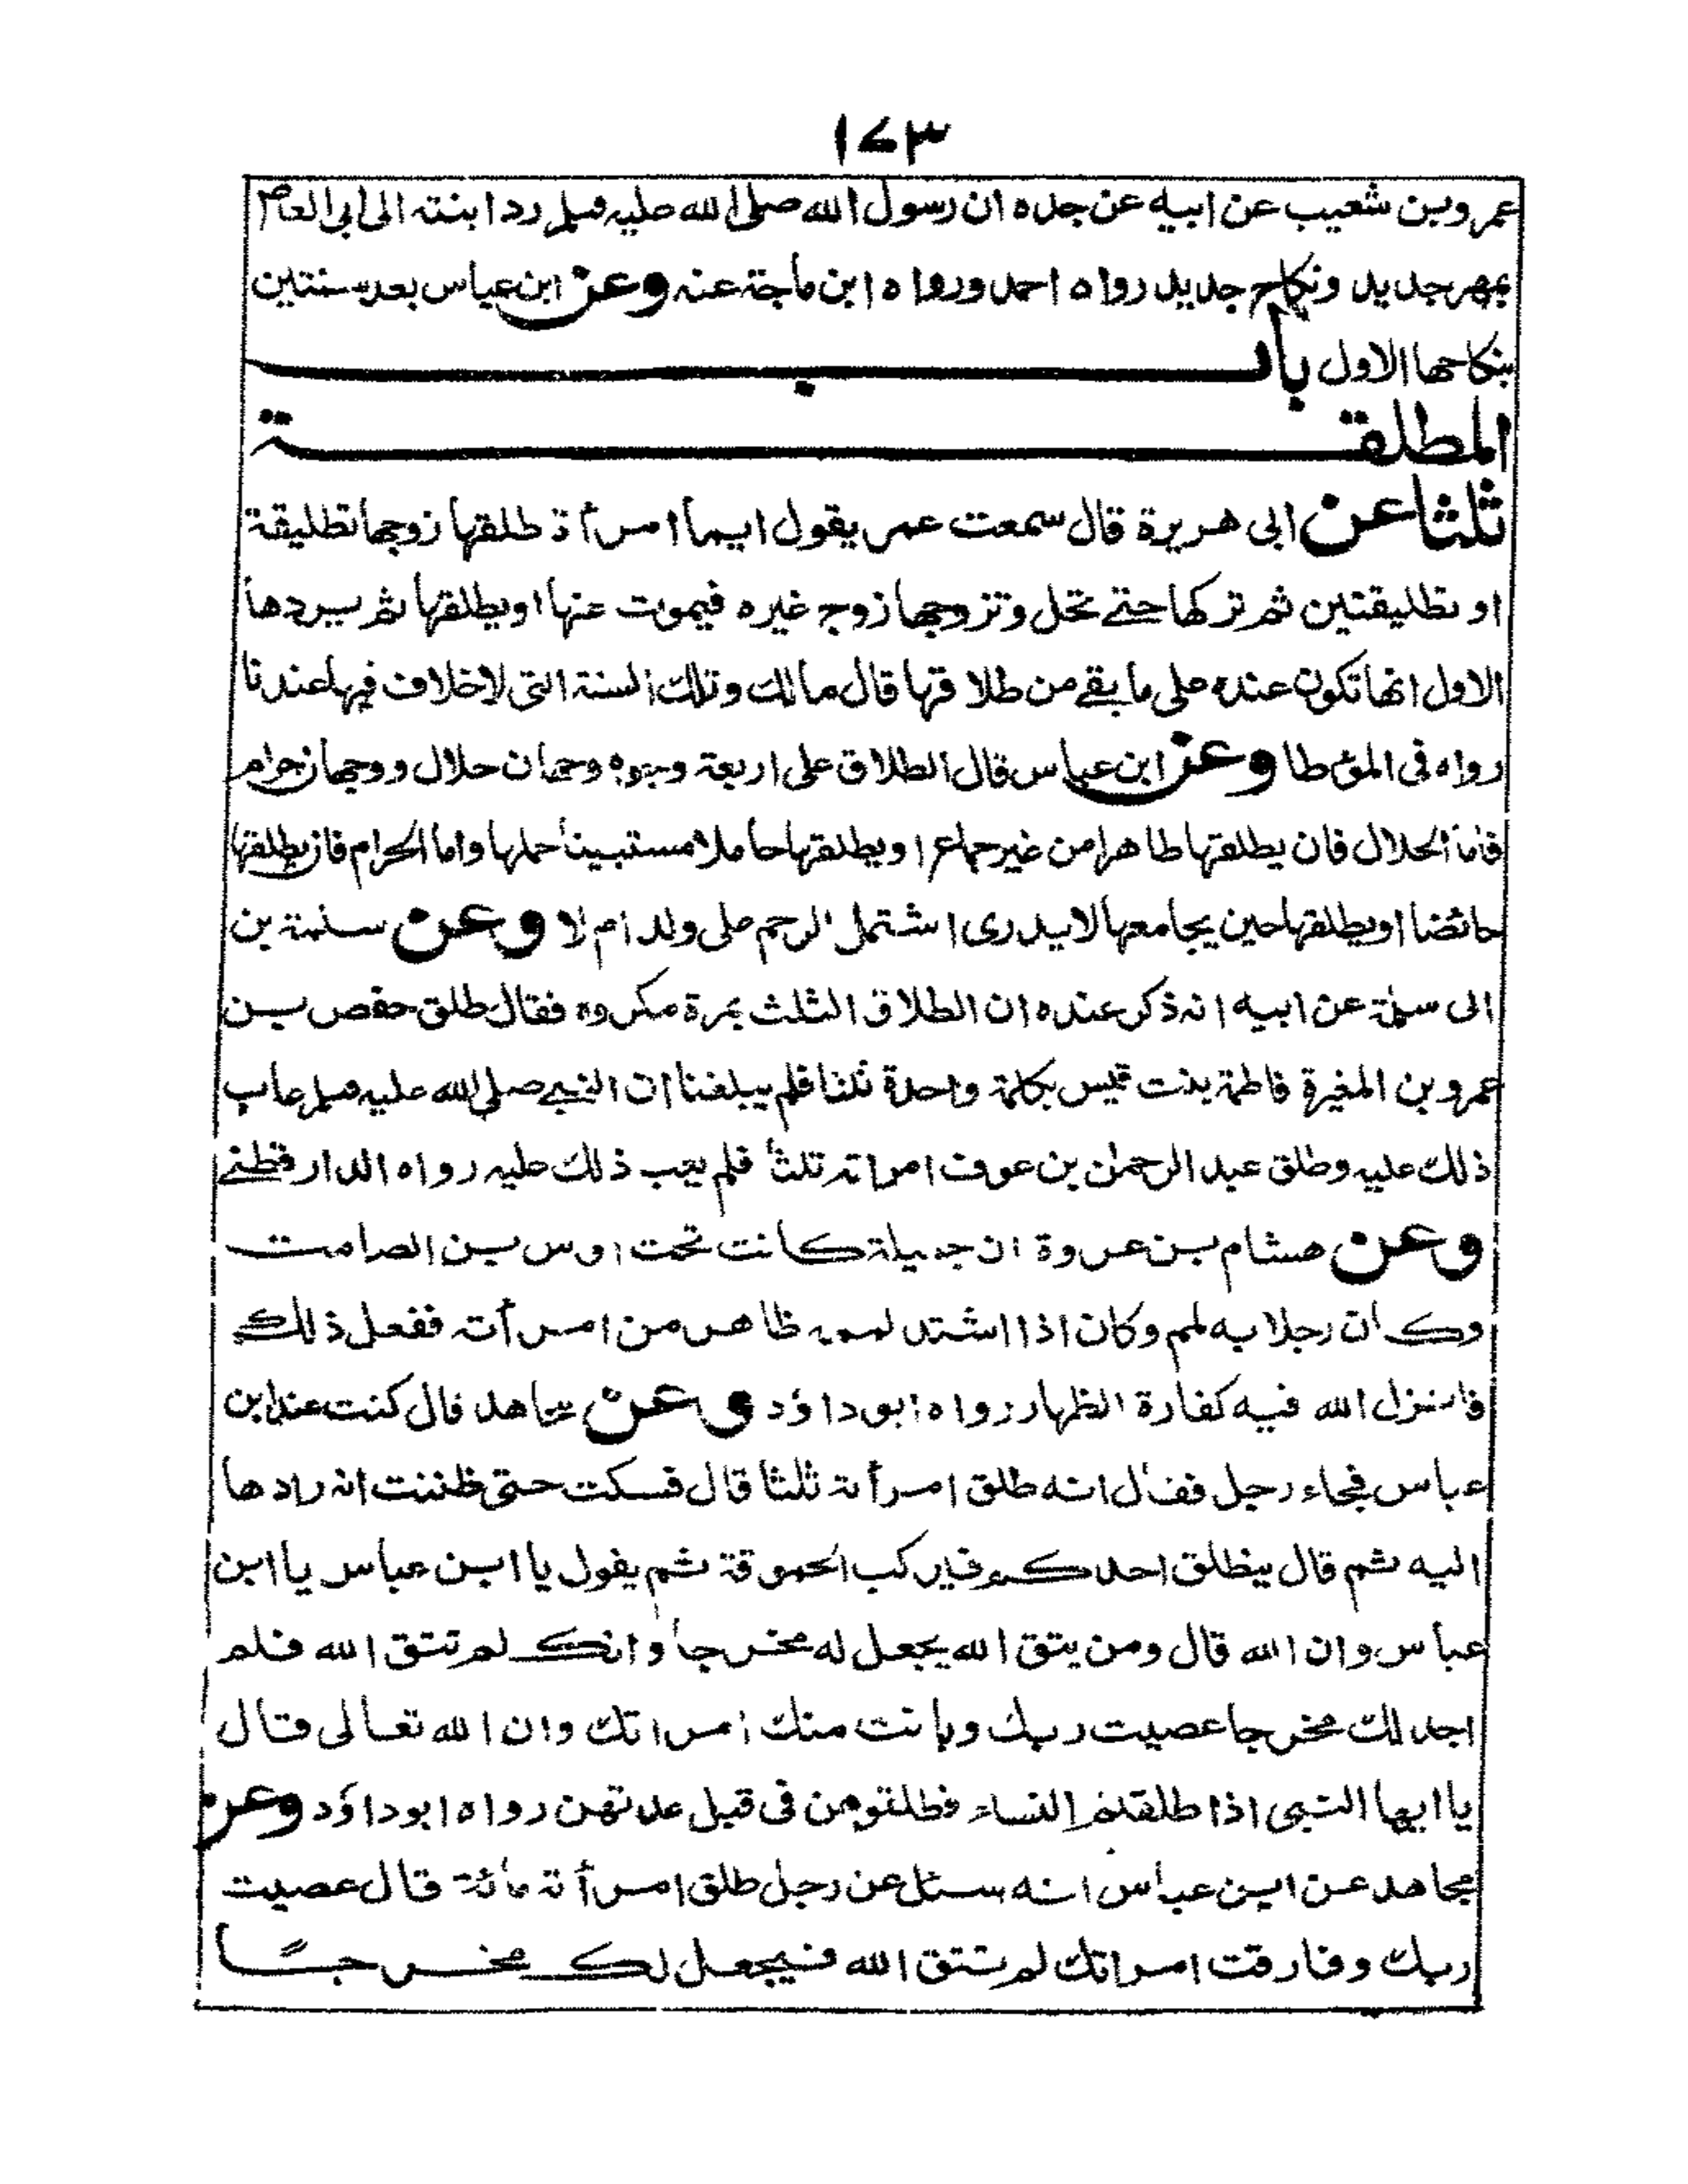 ١٧٣
عمر وبن شعيب عن ابيه عن جده ان رسول الله صلى الله عليه وسلم رد ابنته الى ابى العاص
بمهر جديد ونكاح جديد رواه احمد ورواه ابن ماجة عنه وعن ابن عباس بعد سنتين
بنكاحها الاول باب
المطلقة
ثلثا عن ابى هريرة قال سمعت عمر يقول ايما امرأة طلقها زوجها تطليقة
او تطليقتين ثم تركها حتے تحل وتزوجها زوج غيره فيموت عنها او يطلقها ثم يردها
الاول انها تكون عنده على ما بقے من طلاقها قال مالك وتلك السنة التى لاخلاف فيها عندنا
رواه فى المؤطا وعن ابن عباس قال الطلاق على اربعة وجوه وجهان حلال ووجهان حرام
فاما الحلال فان يطلقها طاهرا من غير جماع او يطلقها حاملا مستبينا حملها واما الحرام فان يطلقها
حائضا او يطلقها حين يجامعها لا يدرى اشتمل الرحم على ولد ام لا وعن سلمة بن
ابى سلمة عن ابيه انه ذكر عنده ان الطلاق الثلث بمرة مكروه فقال طلق حفص بن
عمرو بن المغيرة فاطمة بنت قيس بكلمة واحدة ثلثا فلم يبلغنا ان النبے صلى الله عليه وسلم عاب
ذلك عليه وطلق عبد الرحمن بن عوف امراته ثلثا فلم يعب ذلك عليه رواه الدار قطنے
وعن هشام بن عروة ان جميلة كانت تحت اوس بن الصامت
وكان رجلا به لمم وكان اذا اشتد لممه ظاهر من امرأته ففعل ذلك
فانزل الله فيه كفارة الظهار رواه ابو داؤد وعن مجاهد قال كنت عند ابن
عباس فجاء رجل فقال انه طلق امرأته ثلثا قال فسكت حتى ظننت انه رادها
اليه ثم قال ينطلق احدكم فيركب الحموقة ثم يقول يا ابن عباس يا ابن
عباس وان الله قال ومن يتق الله يجعل له مخرجا وانك لم تتق الله فلم
اجد لك مخرجا عصيت ربك وبانت منك امراتك وان الله تعالى قال
يا ايها النبى اذا طلقتم النساء فطلقوهن فى قبل عدتهن رواه ابو داؤد وعن
مجاهد عن ابن عباس انه سئل عن رجل طلق امرأة مائة قال عصيت
ربك وفارقت امراتك لم تتق الله فيجعل لك مخرجًا